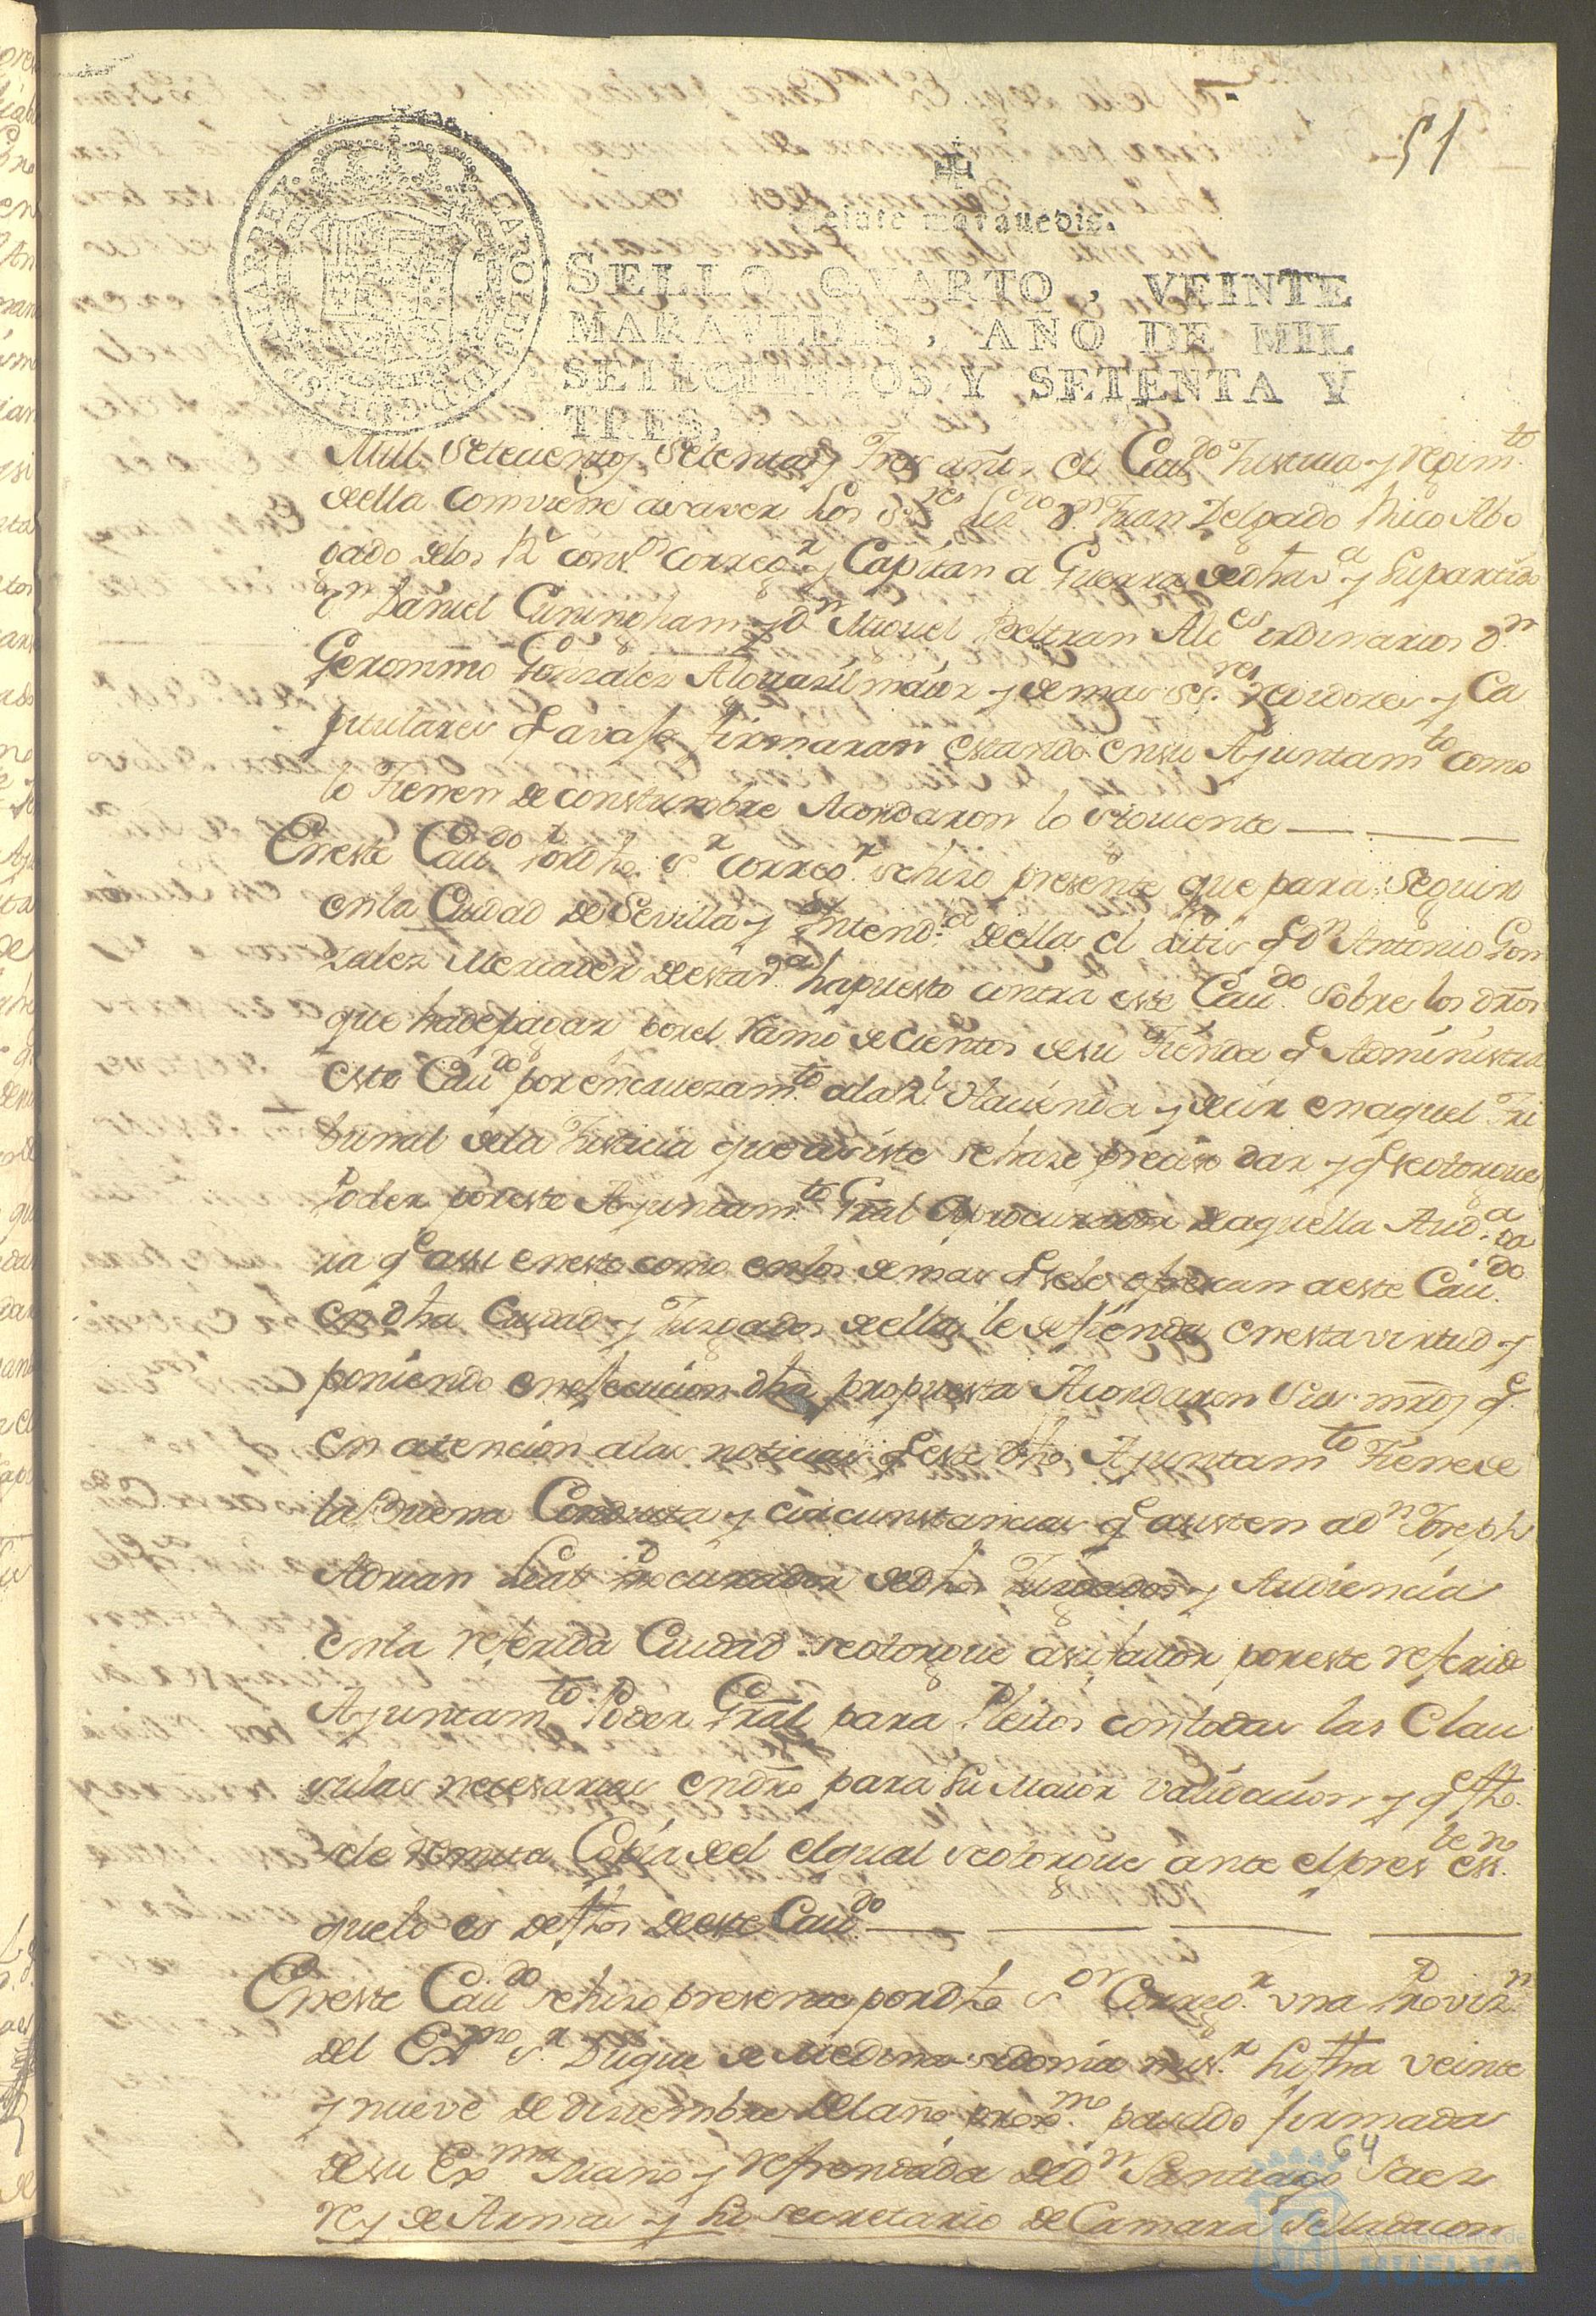 51
Veinte maravedis.
SELLO QVARTO, VEINTE
MARAVEDIS, AÑO DE MIL
SETECIENTOS Y SETENTA Y
TRES.
Mill setecientos setenta y Tres años el Cauᵈᵒ Justicia y regimᵗᵒ
della combiene asaver los SSʳᵉˢ Lizᵈᵒ Dⁿ Fran Delgado Rico Abo
gado delos Rˢ consᵒˢ correxʳ y Capitan a Guerra de dha vᵃ y su partido
Dⁿ Daniel Cuningham y Dⁿ Miguel Beltran Alcᵉˢ ordinarios Dⁿ
Geronimo Gonsales Alguasil maior y demas SSʳᵉˢ regidores y Ca
pitulares q avajo firmaran estando en su Ajuntamᵗᵒ como
lo Tienen de constumbre Acordaron lo siguiente
En este Cauᵈᵒ por dho Sʳ correxʳ se hizo presente que para seguir
en la Ciudad de Sevilla y Intendᵃ della el litis q Dⁿ Antonio Gon
zalez Mercader de esta vᵃ ha puesto contra este Cauᵈᵒ sobre los dros
que ha de pagar por el ramo de cientos de su Tienda q Administra
este Cauᵈᵒ por encavezamᵗᵒ a la Rˡ Hacienda y decir en aquel Tri
bunal de la Justicia que asiste se haze preciso dar y q se otorgue
Poder por este Ajuntamᵗᵒ Gral a procurador de aquella Audᵃ
pa q assi en este como en los demas q se le ofrescan a este Cauᵈᵒ
en dha Ciudad y Juzgados della le defienda en esta virtud y
poniendo en execucion dha propuesta Acordaron sus mrds q
en atencion a las noticias q este dho Ajuntamᵗᵒ Tiene de
la Buena Conducta y circunstancias q asisten a Dⁿ Joseph
Adrian Leal Procurador de dhos Juzgados y Audiencia
en la referida Ciudad se otorgue a su favor por este referido
Ajuntamᵗᵒ Poder Gral para Pleitos con todas las Clau
sulas necesarias en dro para su maior validacion y q fho
se le remita Copia del el qual se otorgue ante el presᵗᵉ essⁿᵒ
que lo es de fhos de este Cauᵈᵒ
En este Cauᵈᵒ se hizo presente por dho Sᵒʳ Correxʳ una Provizⁿ
del Exᵐᵒ Sʳ Duque de Medina sidonia mi Sʳ su fha veinte
y nueve de diziembre del año proxᵐᵒ pasado firmada
de su Exᵐᵃ Mano y refrendada de Dⁿ Santiago Saez
rey de Armas y su secretario de Camara Sellada con
64
Ayuntamiento de
HUELVA